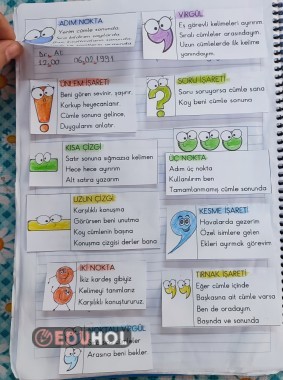 ADIM NOKTA
Yarım cümle sonunda
Dr., Alb.
12.00 06.02.1991
VİRGÜL
Eş görevli kelimeleri ayırırım
Sıralı cümleler arasındayım
Uzun cümlelerde ilk kelime
yanındayım.
ÜNLEM İŞARETİ
Beni gören sevinir, şaşırır.
Korkup heyecanlanır
Cümle sonuna gelince,
Duygularını anlatır.
SORU İŞARETİ
Soru soruyorsa cümle sana
Koy beni cümle sonuna
KISA ÇİZGİ
Satır sonuna sığmazsa kelimen
Hece hece ayırırım
Alt satıra yazarım
ÜÇ NOKTA
Adım üç nokta
Kullanılırım ben
Tamamlanmamış cümle sonunda
UZUN ÇİZGİ
Karşılıklı konuşma
Görürsen beni unutma
Koy cümlenin başına
Konuşma çizgisi derler bana
KESME İŞARETİ
Havalarda gezerim
Özel isimlere gelen
Ekleri ayırmak görevim
İKİ NOKTA
İkiz kardeş gibiyiz
Kelimeyi tanımlarız
Karşılıklı konuştururuz.
TIRNAK İŞARETİ
Eğer cümle içinde
Başkasına ait cümle varsa
Ben de oradayım.
Başında ve sonunda
EDUHOL
VİRGÜL
Arasına beni bekler.